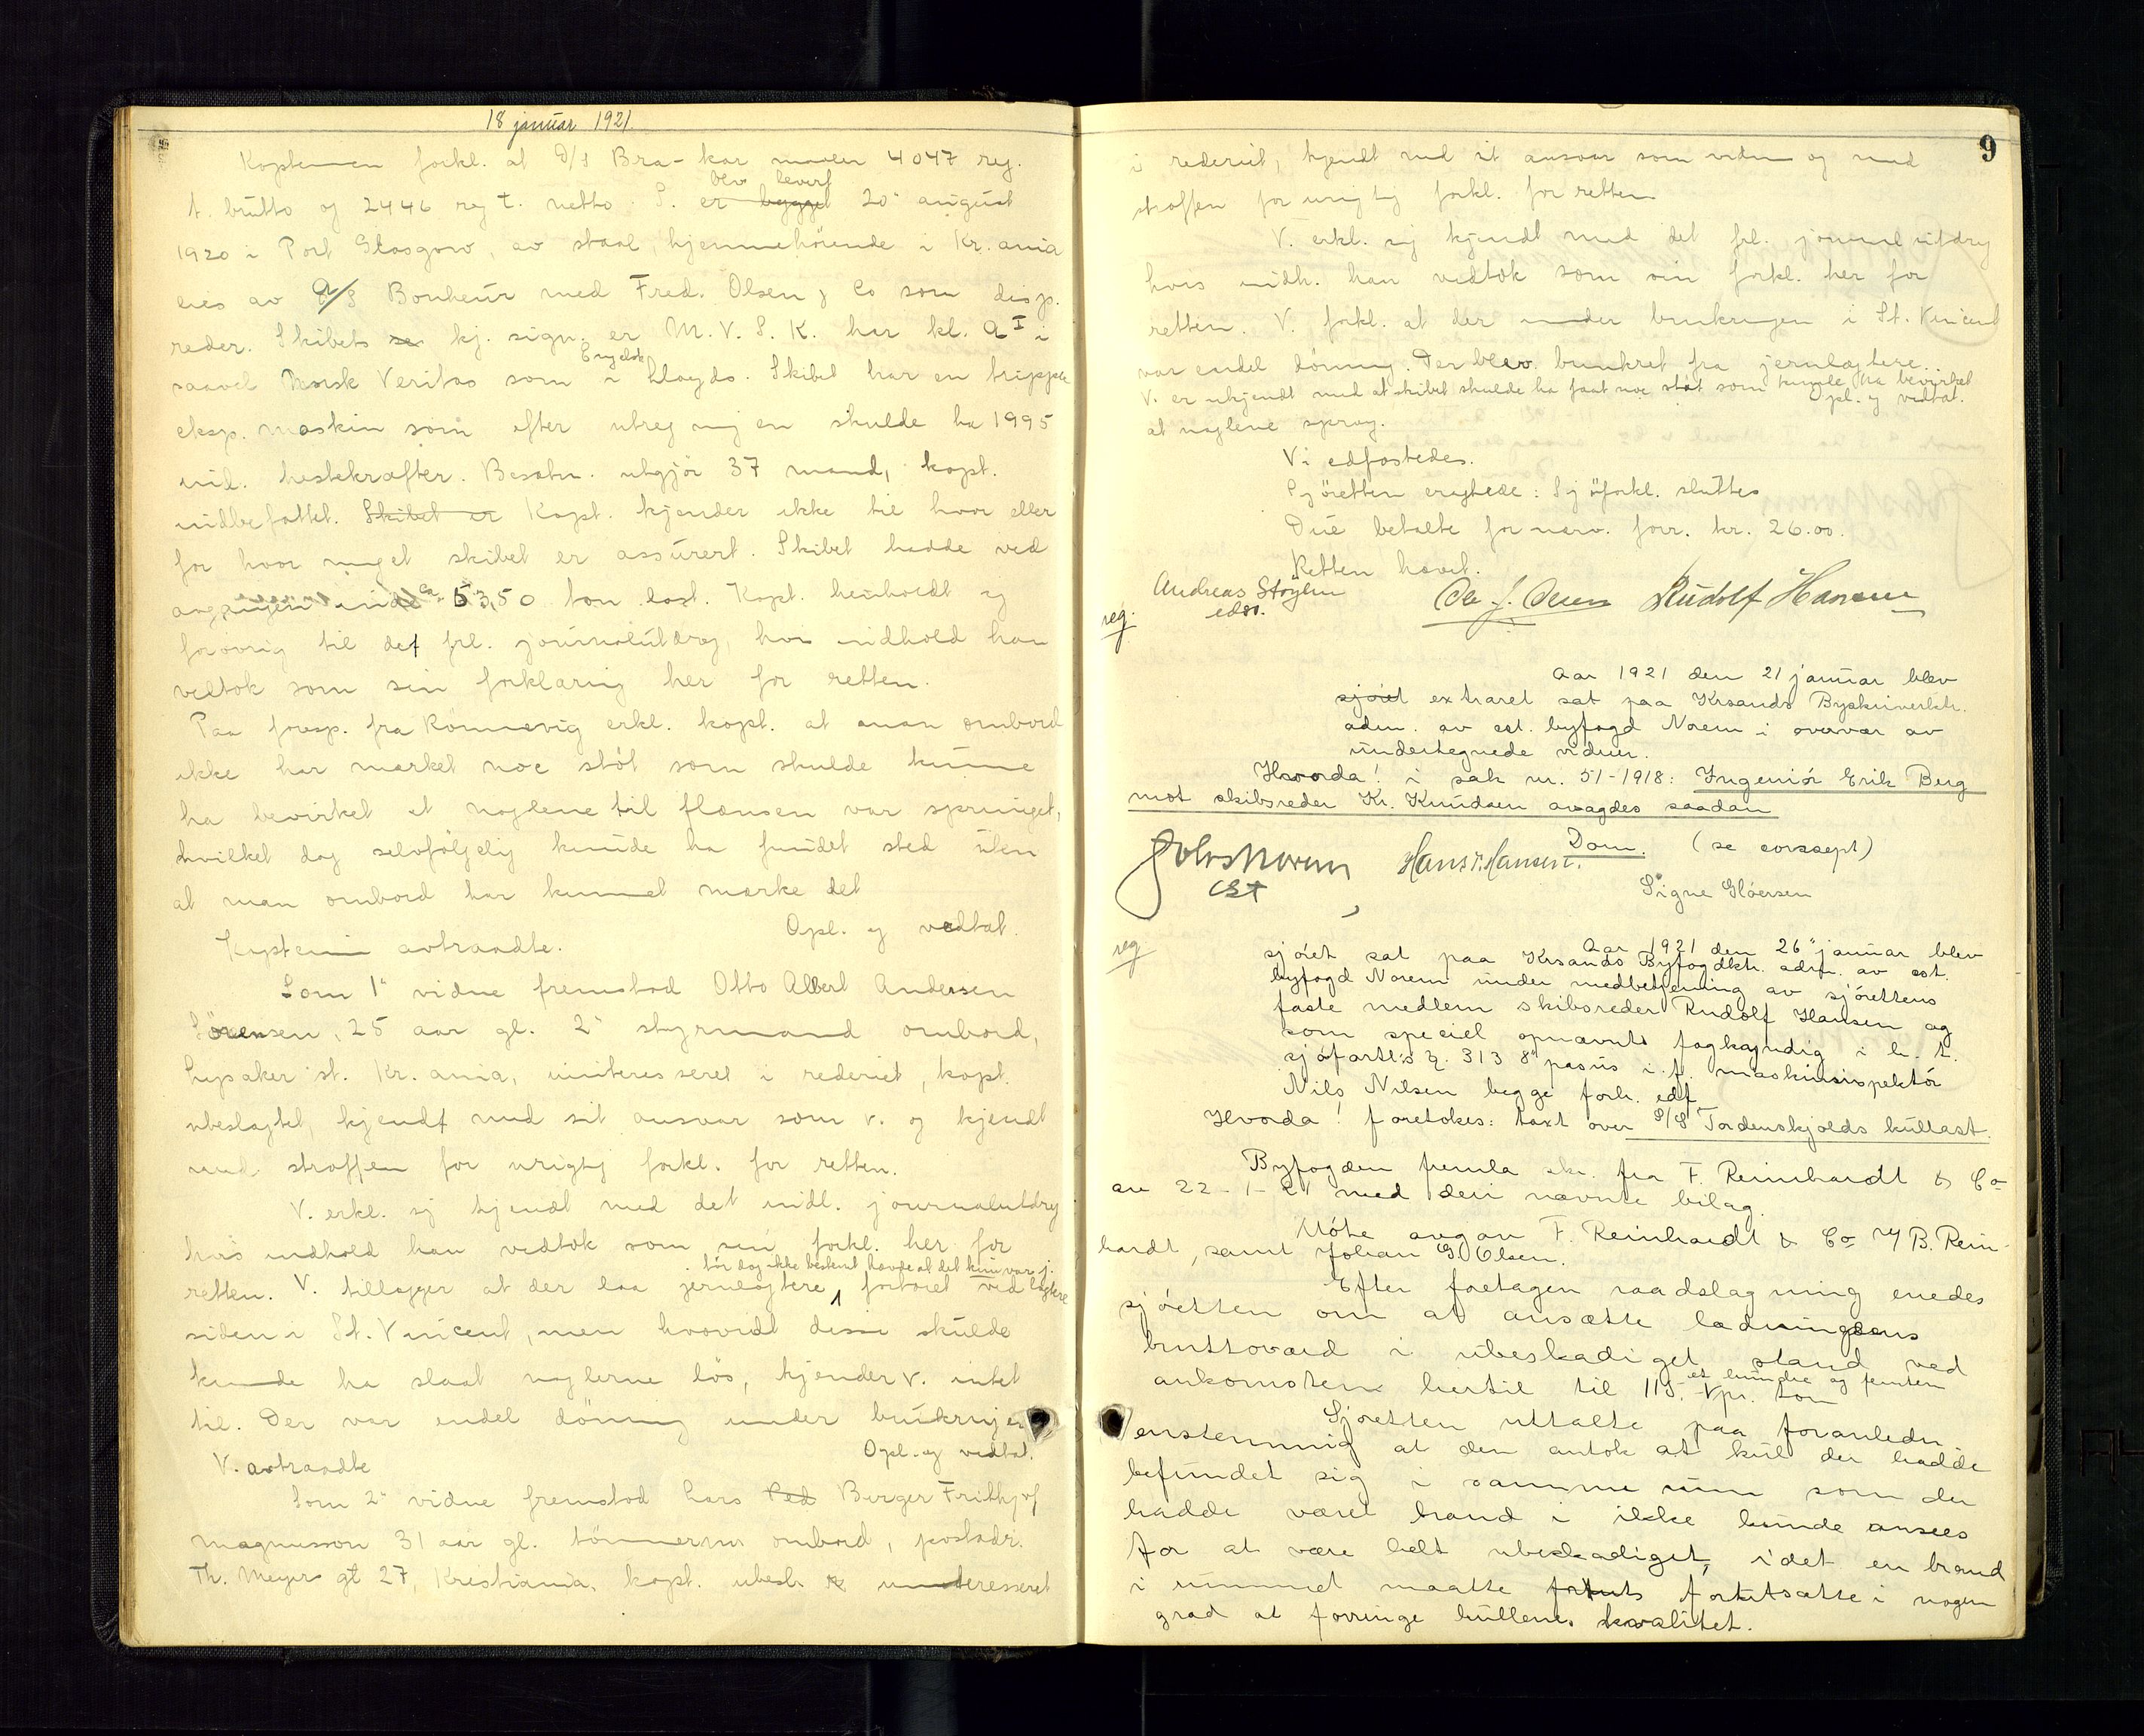 18 januar 1921.
Kaptenen forkl. at D/S Bra-kar maaler 4047 reg.
t. brutto og 2446 reg t. netto. S. er bygget blev levert 20' august
1920 i Port Glasgow, av staal, hjemmehörende i Kr.ania
eies av A/S Bonheur med Fred. Olsen & Co som disp.
reder. Skibets kj. sign. er M.V.S.K. har kl. A I i
saavel Norsk Veritas som i Engelsk Lloyds. Skibet har en trippel
eksp. maskin som efter utregning en skulde ha 1995
ind. hestekræfter. Besætn. utgjör 37 mand, kapt.
indbefattet. Skibet er Kapt. kjender ikke til hvor eller
for hvor meget skibet er assurert. Skibet hadde ved
avgangen inde ca. 5350 ton last. Kapt. henholdt sig
forövrig til det frl. journalutdrag, hvis indhold han
vedtok som sin forklaring her for retten.
Paa foresp. fra Rönnevig erkl. kapt. at man ombord
ikke har merket noe stöt som skulde kunne
ha bevirket at naglene til flænsen var sprunget,
hvilket dog selvfölgelig kunde ha fundet sted uten
at man ombord har kunnet merke det
Opl. og vedtat.
Kaptenen avtraadte.
Som 1' vidne fremstod Otto Albert Andersen
Sörensen, 25 aar gl. 2' styrmand ombord,
Lysaker st. Kr.ania, uinteresseret i rederiet, kapt.
ubeslegtet, kjendt med sit ansvar som v. og kjendt
med straffen for urigtig forkl. for retten.
V. erkl. sig kjendt med det indl. journalutdrag
hvis indhold han vedtok som sin forkl. her for
retten. V. tillægger at der laa jernlegtere, tör dog ikke bestemt hævde at det kun var j.legtere fortöiet ved
siden i St. Vincent, men hvorvidt disse skulde
kunde ha slaat naglerne lös, kjender v. intet
til. Der var endel dönning under bunkringen
Opl. og vedtat.
V. avtraadte
Som 2' vidne fremstod Lars Ped Berger Frithjof
Magnusson 31 aar gl. tömmerm. ombord, postadr.
Th. Meyers gt 27, Kristiania, kapt. ubesl. uinteresseret
9
i rederiet, kjendt med sit ansvar som vidne og med
straffen for urigtig forkl. for retten
V. erkl. sig kjendt med det frl. journalutdrag
hvis indh. han vedtok som sin forkl. her for
retten. V. forkl. at der under bunkringen i St. Vincent
var endel dönning. Der blev bunkret fra jernlegtere.
V. er ukjendt med at skibet skulde ha faat noe stöt som kunde ha bevirket
at naglene sprang. Opl. og vedtat.
Vi edfæstedes.
Sjöretten eragtede: Sjöforkl. sluttes
Due betalte for nærv. forr. kr. 26.00.
Retten hævet.
Andreas Stöylen
edsv.
Ole J. Olsen Rudolf Hansen
reg.
Aar 1921 den 21 januar blev
sjöret extraret sat paa Krsands Byskriverktr.
adm. av cst. byfogd Norem i overvær av
undertegnede vidner.
Hvorda! i sak nr. 51-1918: Ingeniör Erik Berg
mot skibsreder Kr. Knudsen avsagdes saadan
Dom. (se consept)
Johs Norem
cst
Hans H. Hansen.
Signe Glöersen
reg
Aar 1921 den 26' januar blev
sjöret sat paa Krsands Byfogdktr. adm. av cst.
byfogd Norem under medbetjening av sjörettens
faste medlem skibsreder Rudolf Hansen og
som speciel opnævnt fagkyndig i h. t.
sjöfartl's § 313 8' passus i.f. maskininspektör
Nils Nilsen begge forh. edf
Hvorda! foretokes: taxt over S/S Tordenskjolds kullast.
Byfogden fremla skr. fra F. Reinhardt & Co
av 22-1-21 med deri nævnte bilag.
Möte avgav F. Reinhardt & Co v/ B. Rein-
hardt, samt Johan G. Olsen.
Efter foretagen raadslagning enedes
sjöretten om at ansætte ladningens
bruttoværd i ubeskadiget stand ved
ankomsten hertil til 115.- et hundre og femten pr. ton
Sjöretten uttalte paa foranledn.
enstemmig at den antok at kul der hadde
befundet sig i samme rum som der
hadde været brand i ikke kunde ansees
for at være helt ubeskadiget, idet en brand
i rummet maatte fortuts forutsætte i nogen
grad at forringe kullenes kvalitet.